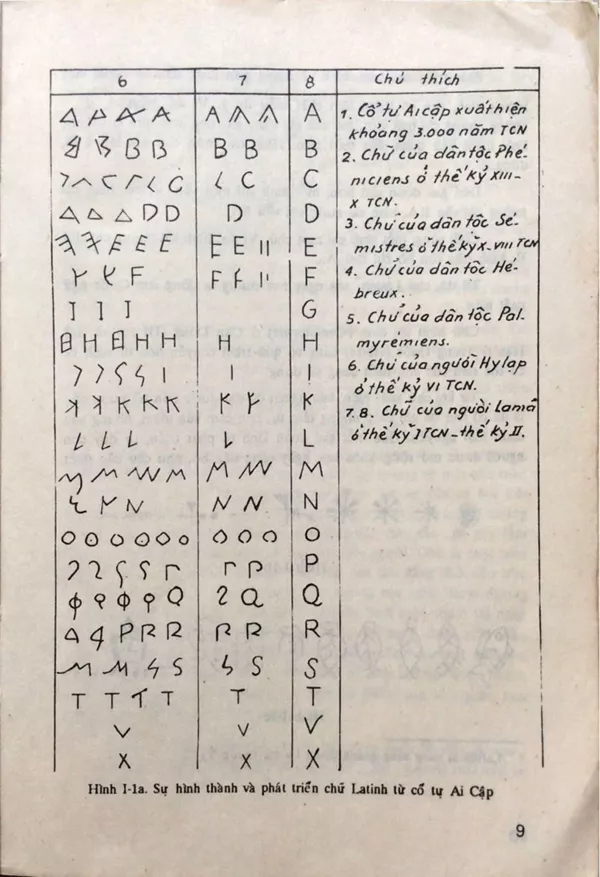 6 7 8 Chú thích
A
B B B B B
C C C
D D D D
E E E E E E
F F F
I I I G
H H H H H H
I I I
K K K K
L
M
N N N N
O O O O O O O O O O
P P
Q Q Q
P R R R R R
S S S
T T T T T T
V V V
X X X
1. Cổ tự Ai cập xuất hiện
khoảng 3.000 năm TCN
2. Chữ của dân tộc Phé-
niciens ở thế kỷ XIII-
X TCN.
3. Chữ của dân tộc Sé-
mistres ở thế kỷ X-VIII TCN
4. Chữ của dân tộc Hé-
breux.
5. Chữ của dân tộc Pal-
myrémiens.
6. Chữ của người Hy lạp
ở thế kỷ VI TCN.
7.8. Chữ của người Lamã
ở thế kỷ I TCN - thế kỷ II.
Hình I-1a. Sự hình thành và phát triển chữ Latinh từ cổ tự Ai Cập
9